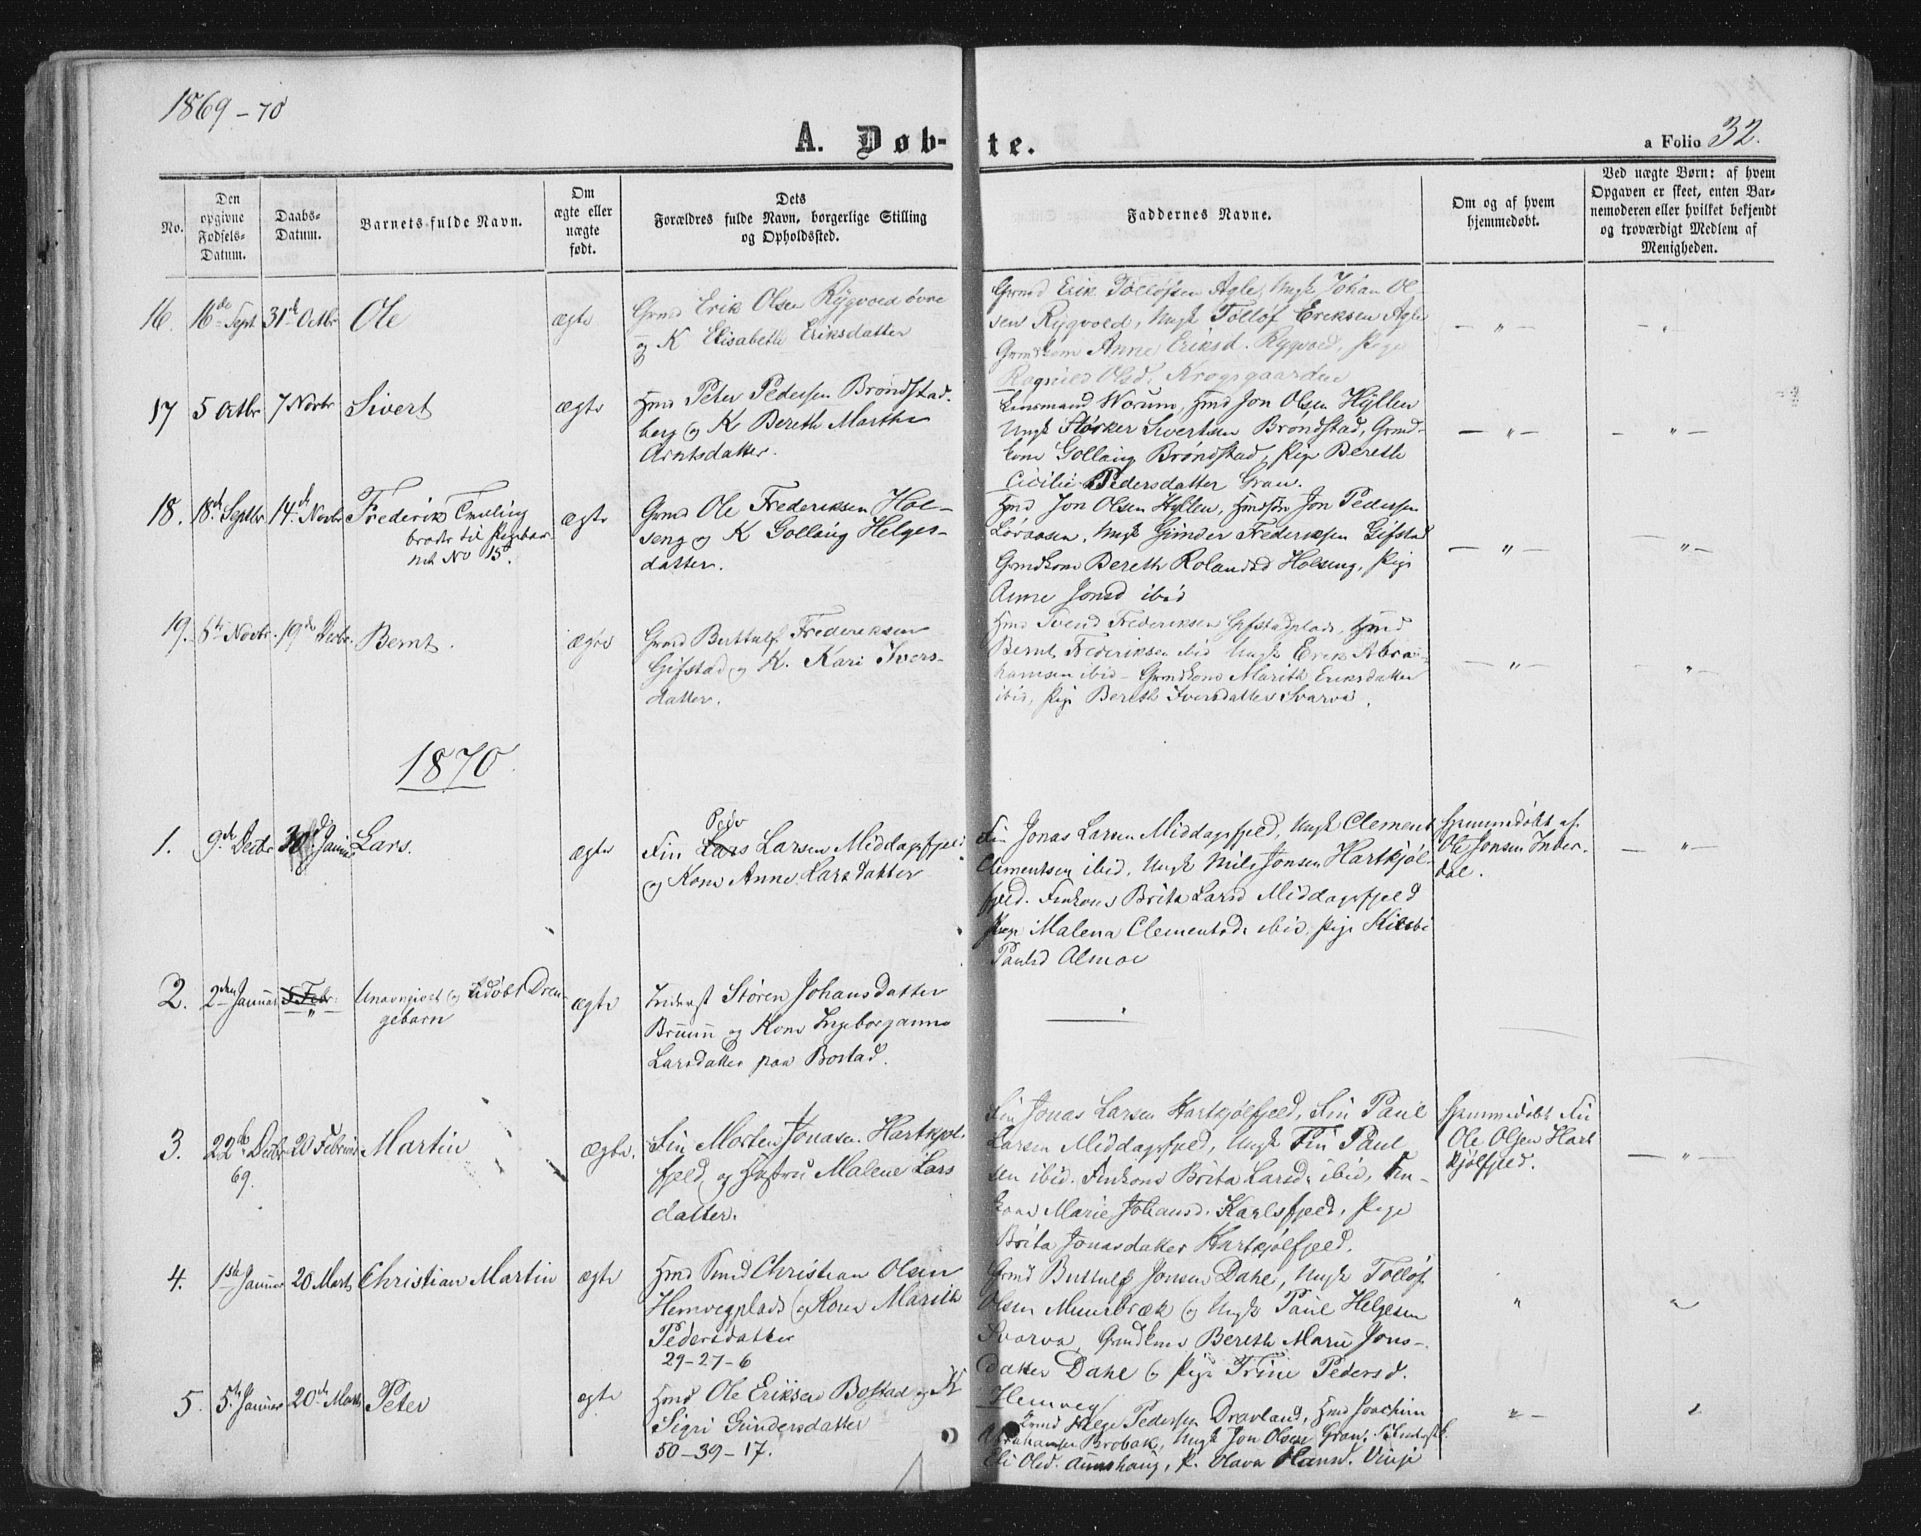 1869-70
A. Døb-te.
a Folio 32.
No.
Den opgivne Fødsels-Datum.
Daabs-Datum.
Barnets fulde Navn.
Om ægte eller uægte født.
Dets Forældres fulde Navn, borgerlige Stilling og Opholdssted.
Faddernes Navne.
Om og af hvem hjemmedøbt.
Ved uægte Børn: af hvem Opgaven er skeet, enten Barnemoderen eller hvilket bekjendt og troværdigt Medlem af Menigheden.
16. 16de Sept 31te Octbr Ole ægte
Grmd Erik Olsen Rygvold øvre
og K Elisabeth Eriksdatter
Grmd Erik Tolløfsen Agle, Ungk Johan Ol
sen Rygvold, Ungk Tolløf Eriksen Agle
Grmdkone Anne Eriksd. Rygvold, Pige
Ragnild Olsd. Krogsgaarden
17 5 Octbr 7 Novbr Sivert ægte
Hmd Peter Pedersen Brøndstad
berg og K Bereth Marthe
Arntsdatter.
Lensmand Worum, Hmd Jon Olsen Hyllen
Ungk Størker Sivertsen Brøndstad, Grmd-
kone Gollaug Brøndstad, Pige Bereth
Cicilie Pedersdatter Gran.
18. 18de Septbr 14de Novbr Frederik Tvilling
broder til Pigebar
net No 15. ægte
Grmd Ole Frederiksen Hol-
seng og K Gollaug Helges-
datter.
Hmd Jon Olsen Hyllen, Jon Pedersen
Ungk Gunder Frederiksen Gifstad
Grmdkone Bereth Rolandsd Holseng, Pige
Anne Jonsd ibid
19. 6te Novbr. 19de Decbr. Bernt. ægte
Grmd Buttulf Frederiksen
Gifstad og K. Kari Ivers-
datter.
Hmd Svend Frederiksen Gifstadplads, Hmd
Bernt Frederiksen ibid Ungk Erik Abra-
hamsen ibid - Grmdkone Marith Eriksdatter
ibid, Pige Bereth Iversdatter Svarva.
1870
1. 9de Decbr 30 Januar Lars. ægte
Peder
Fin Lars Larsen Middagsfjeld
og Kone Anne Larsdatter
Fin Jonas Larsen Middagsfjeld, Ungk Clement
Clementsen ibid, Ungk Nils Jonsen Hartkjøl-
fjeld. Finkone Brita Larsd Middagsfjeld
Pige Malena Clementsd. ibid, Pige
Paulsd Almoe
Hjemmedøbt af
Ole Jonsen Inder-
dal.
2. 2den Januar 5 Febr. Unavngivet og Udøbt Dren-
gebarn ægte
Inderst Støren Johansdatter
Bruun og Kone Ingeborganna
Larsdatter paa Bostad.
3. 22de Decbr 69. 20 Februar Martin ægte.
Fin Morten Jonasen Hartkjøl-
fjeld og Hustru Malene Lars
datter.
Fin Jonas Larsen Hartkjølfjeld, Fin Paul
Larsen Middagsfjeld, Ungk Fin Paul
sen ibid. Finkone Brita Larsd. ibid, Fin-
kone Marie Johansd. Karlsfjeld, Pige
Brita Jonasdatter Hartkjølfjeld.
Hjemmedøbt
Ole Olsen Hart
kjølfjeld.
4. 1ste Januar 20 Marts Christian Martin ægte
Hmd Smed Christian Olsen
Hemvegplads og Kone Marith
Pedersdatter
29-27-6
Grmd Buttulf Jonsen Dahl, Ungk Tolløf
Olsen Muurbræk og Ungk Paul Helgesen
Svarva, Grmdkone Bereth Marie Jons-
datter Dahl og Pige Trine Pedersd.
Hemveg
5. 5te Januar 20de Marts Peter ægte
Hmd Ole Eriksen Bostad og K
Sigri Gundersdatter
50-39-17.
Grmd Helge Pedersen Dravland, Hmd Joachim
Abrahamsen Brobak, Ungk Jon Olsen Gran,
Eli Olsd. Aunshaug, P. Olava Hansd. Vinje